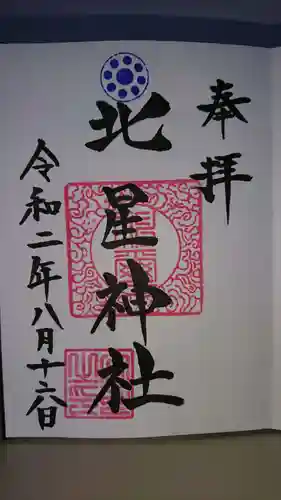 奉拝
北星神社
令和二年八月十六日